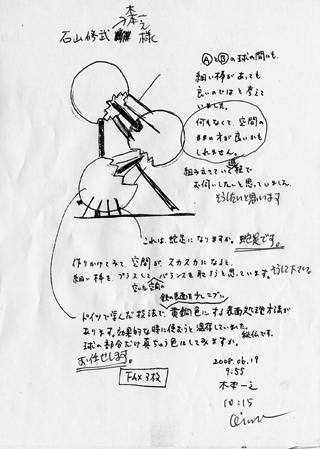 木本一之
石山修武 様
ⒶとⒷの球の間にも、
細い棒があっても
良いのではと考えて
いました。
何もなくて、空間の
ままの方が良いかも
しれません。
組み立てていく過程で
お伺いしたいと思っていました。
そうしたいと思います
これは、蛇足になりますか。 蛇足です。
作りかけてみて、空間が、スカスカになると、
細い棒を、プラスして、バランスを取ろうと思っています。そうして下さい。
ドイツで学んだ技法で、黄銅色にする表面処理方法が
あります。効果的な時に使おうと温存していました。
球の部分だけ真ちゅう色にしてみますか。
お任せします。
FAX 3枚
2008.06.19
9:55
木本一之
10:15